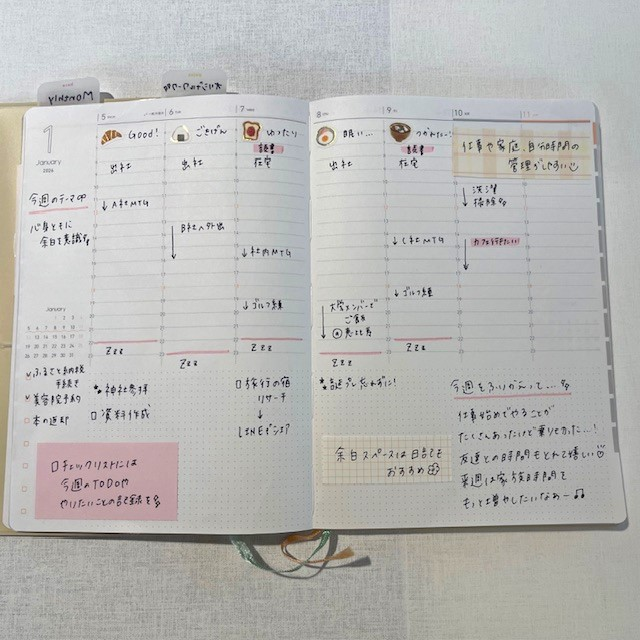 MONTHLY
1
January
2026
今週のテーマ
心身ともに
余白を意識
January
ふるさと納税
手続き
美容院予約
本の返却
5
Good!
出社
↓A社MTG
Zzz
神社参拝
□ 資料作成
□チェックリストには
今週のTODOや
やりたいことの記録を
6
ごきげん
出社
B社へ外出
Zzz
7
ゆったり
読書
在宅
↓社内MTG
↓ゴルフ練
Zzz
□ 旅行の宿
リサーチ
↓
LINEでシェア
8
眠い…
出社
大学メンバーで
ご飯
@恵比寿
Zzz
誕プレ忘れずに!
余白スペースは日記でも
おすすめ
9
つかれた…
読書
在宅
↓C社MTG
↓ゴルフ練
Zzz
10
11
仕事や家庭、自分時間の
管理がしやすい
洗濯
掃除
カフェ行きたい
今週をふりかえって…
仕事始めでやることが
たくさんあったけど乗りきった…!
友達との時間もとれて嬉しい
来週は家族時間を
もっと増やしたいなぁー♫